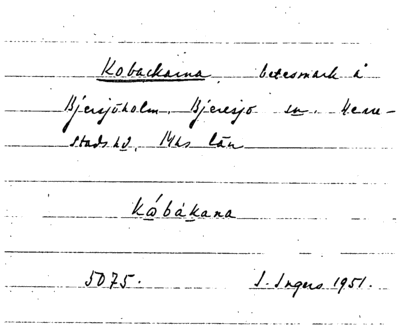 Kobackarna, betesmark å
Bjersjöholm, Bjeresjö sn, Herre-
stads hd, Mhs län
Kǻbákana
5075. I. Ingers 1951.